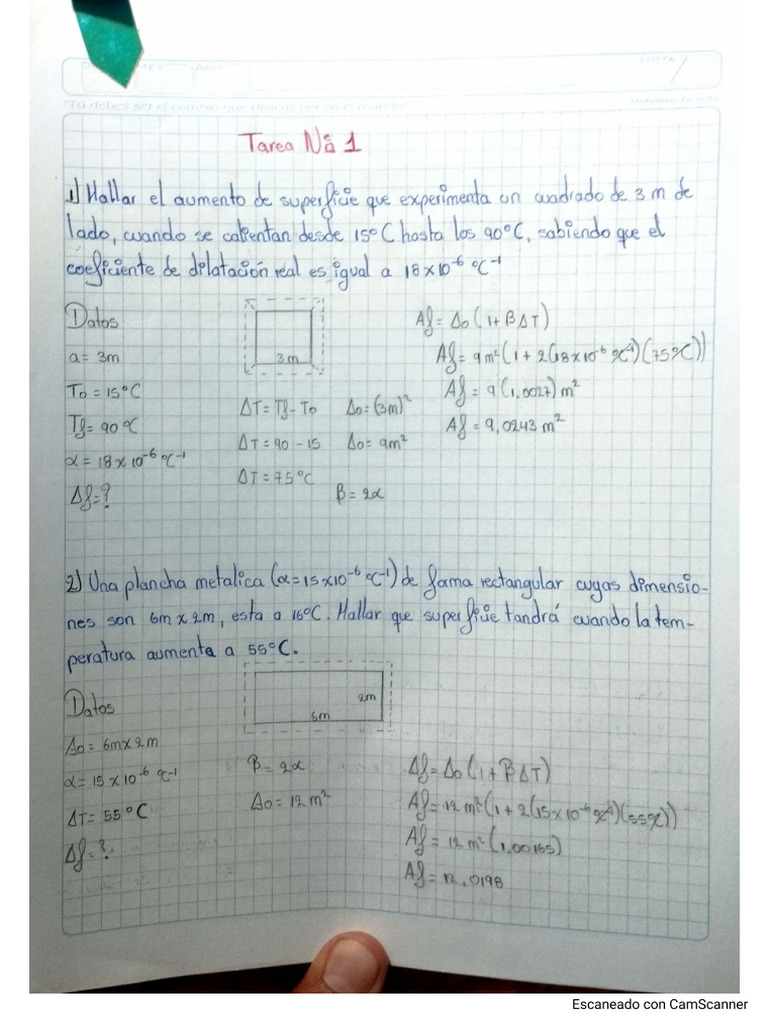 NOTA
"Tú debes ser el cambio que deseas ver en el mundo"
Tarea Nº 1
1) Hallar el aumento de superficie que experimenta un cuadrado de 3 m de
lado, cuando se calientan desde 15°C hasta los 90°C, sabiendo que el
coeficiente de dilatación real es igual a 18x10⁻⁶ °C⁻¹
Datos
a = 3m
T₀ = 15°C
Tf = 90°C
α = 18x10⁻⁶ °C⁻¹
Af = ?
3m
ΔT = Tf - T₀
ΔT = 90 - 15
ΔT = 75°C
A₀ = (3m)²
A₀ = 9m²
β = 2α
Af = A₀(1 + βΔT)
Af = 9m²(1 + 2(18x10⁻⁶ °C⁻¹)(75°C))
Af = 9(1,0027)m²
Af = 9,0243 m²
2) Una plancha metalica (α = 15x10⁻⁶ °C⁻¹) de forma rectangular cuyas dimensio-
nes son 6m x 2m, esta a 16°C. Hallar que superficie tandrá cuando la tem-
peratura aumenta a 55°C.
Datos
A₀ = 6m x 2m
α = 15x10⁻⁶ °C⁻¹
ΔT = 55°C
Af = ?
2m
6m
β = 2α
A₀ = 12m²
Af = A₀(1 + βΔT)
Af = 12m²(1 + 2(15x10⁻⁶ °C⁻¹)(55°C))
Af = 12m²(1,00165)
Af = 12,0198
Escaneado con CamScanner